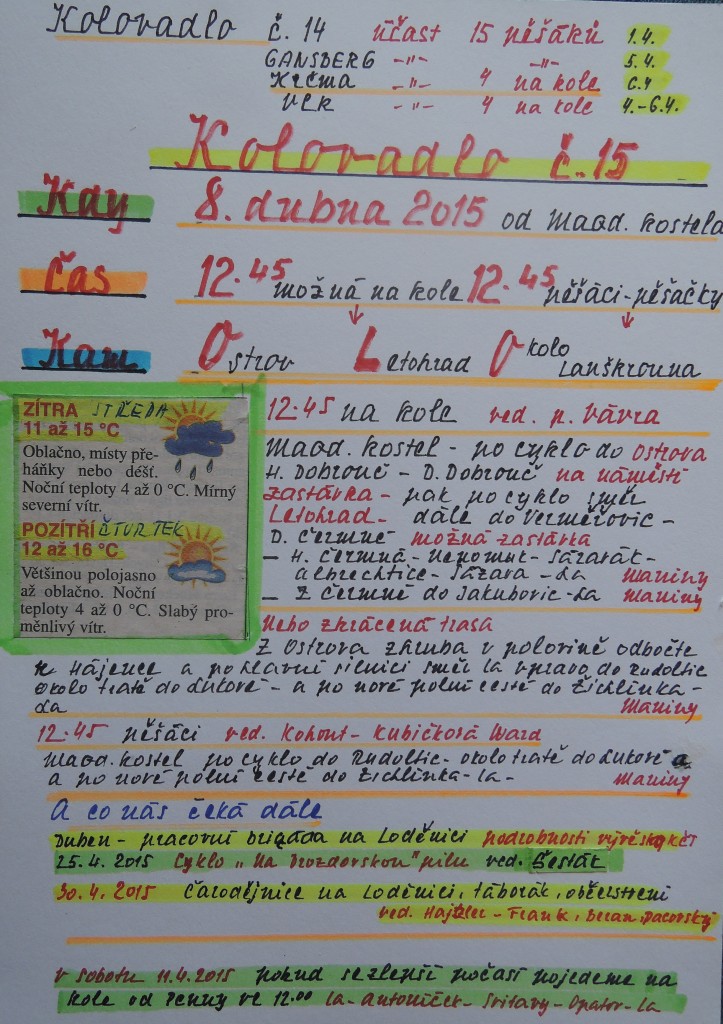 Kolovadlo č. 14 účast 15 pěšáků 1.4.
GANSBERG -"- -"- 5.4.
Krčma -"- 4 na kole 6.4
VLK -"- 4 na kole 4.-6.4.
Kolovadlo č.15
Kdy 8. dubna 2015 od Maod. kostela
Čas 12.45 možná na kole 12.45 pěšáci-pěšačky
Kam Ostrov Letohrad Okolo Lanškrouna
ZÍTRA STŘEDA
11 až 15 °C
Oblačno, místy pře-
háňky nebo déšť.
Noční teploty 4 až 0 °C. Mírný
severní vítr.
POZÍTŘÍ ČTVRTEK
12 až 16 °C
Většinou polojasno
až oblačno. Noční
teploty 4 až 0 °C. Slabý pro-
měnlivý vítr.
12:45 na kole ved. p. Vávra
Maod. kostel - po cyklo do Ostrova
H. Dobrouč - D. Dobrouč na náměstí
zastávka - pak po cyklo směr
Letohrad - dále do Verměřovic -
D. Čermné možná zastávka
- H. Čermná - Nepomuk - Sázavák -
Albrechtice - Sázava - La Mariny
- Z Čermné do Jakubovic - La Mariny
Nebo zkrácená trasa
Z Ostrova zhruba v polovině odbočte
k Hájence a po hlavní silnici směr La vpravo do Rudoltic
okolo tratě do Lukové - a po nové polní cestě do Žichlínka -
La Mariny
12.45 pěšáci ved. Kohout - Kubíčková Ward
Maod. kostel po cyklo do Rudoltic - okolo tratě do Lukové a
a po nové polní cestě do Žichlínka - La - Mariny
A co nás čeká dále
Duben - pracovní brigáda na Loděnici podrobnosti vývěska KČT
25.4. 2015 Cyklo „Na Drozdovskou" pilu ved. Šesták
30.4. 2015 Čarodějnice na Loděnici, táborák, občerstvení
ved. Hajzler - Frank, Beran, Pacovský
v sobotu 11.4.2015 pokud se zlepší počasí pojedeme na
kole od Penny ve 12.00 La - Antoníček - Svitavy - Opatov - La